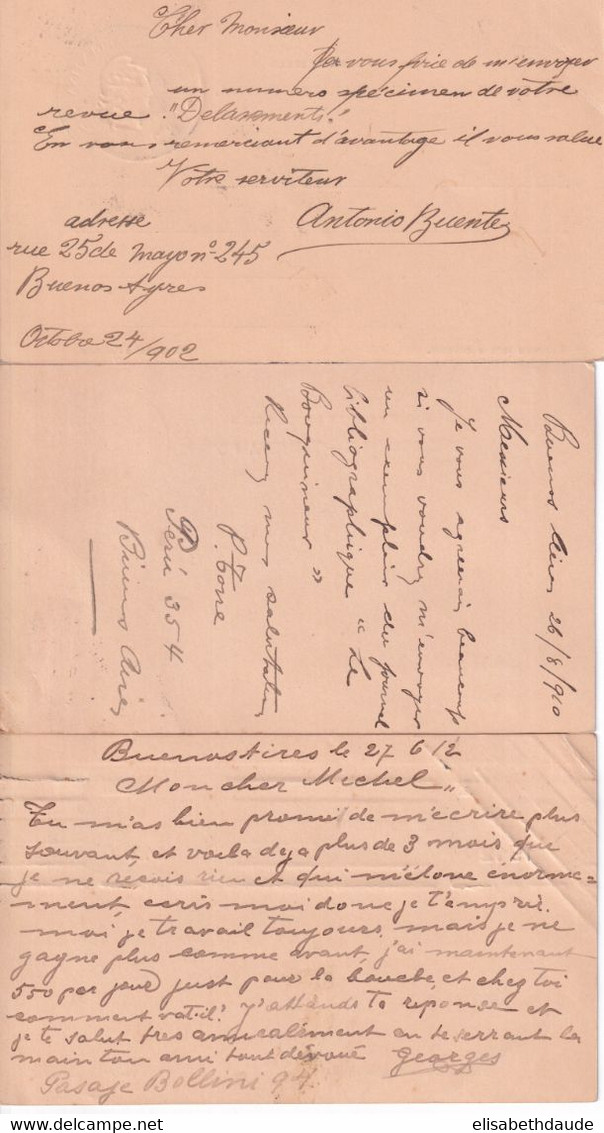 Cher Monsieur
Je vous prie de m'envoyer
un numero spécimen de votre
revue "Delasements"
En vous remerciant d'avantage il vous salue
Votre serviteur
adresse Antonio Buente
rue 25 de mayo nº 245
Buenos Ayres
Octobe 24/902
Buenos Aires 26/8/910
Messieurs
Je vous agrerais beaucoup
si vous voudrez m'envoyer
un exemplaire du journal
bibliographique "Le
Bouquineur"
Recevez mes salutations
P. Torre
Perú 354
Buenos Aires
Buenos Aires le 27 6 12
Mon cher Michel,,
Tu m'as bien promi de m'écrire plus
souvant, et voila deja plus de 3 mois que
je ne recois rien et qui m'étone énorme=
ment, ecris moi donc je t'empri.
moi je travail toujours, mais je ne
gagne plus comme avant, j'ai maintenant
550 par jour just pour la bouche, et chez toi
comment vatil? J'attends ta reponse et
je te salut tres amicalément en te serrant la
main ton ami tout dévoué Georges
Pasaje Bollini 94
elisabethdaude